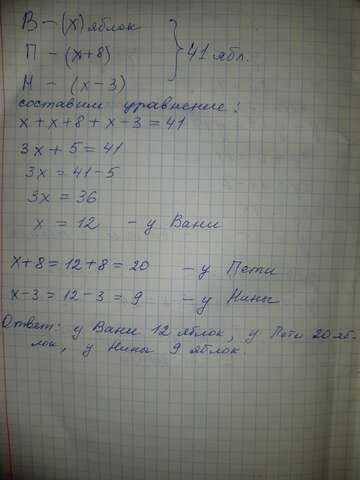 В – (х) яблок
П – (х+8)
Н – (х-3)
} 41 ябл.
составим уравнение:
х + х + 8 + х - 3 = 41
3х + 5 = 41
3х = 41 - 5
3х = 36
х = 12 – у Вани
х+8 = 12 + 8 = 20 – у Пети
х-3 = 12 - 3 = 9 – у Нины
Ответ: у Вани 12 яблок, у Пети 20 яб-
лок, у Нины 9 яблок.